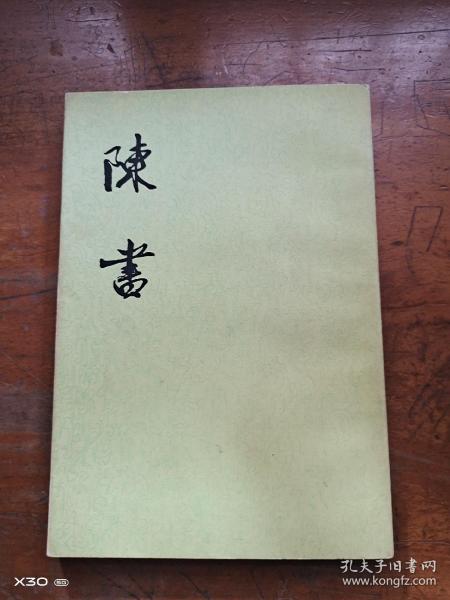 陳書
X30 5G
孔夫子旧书网
www.kongfz.com